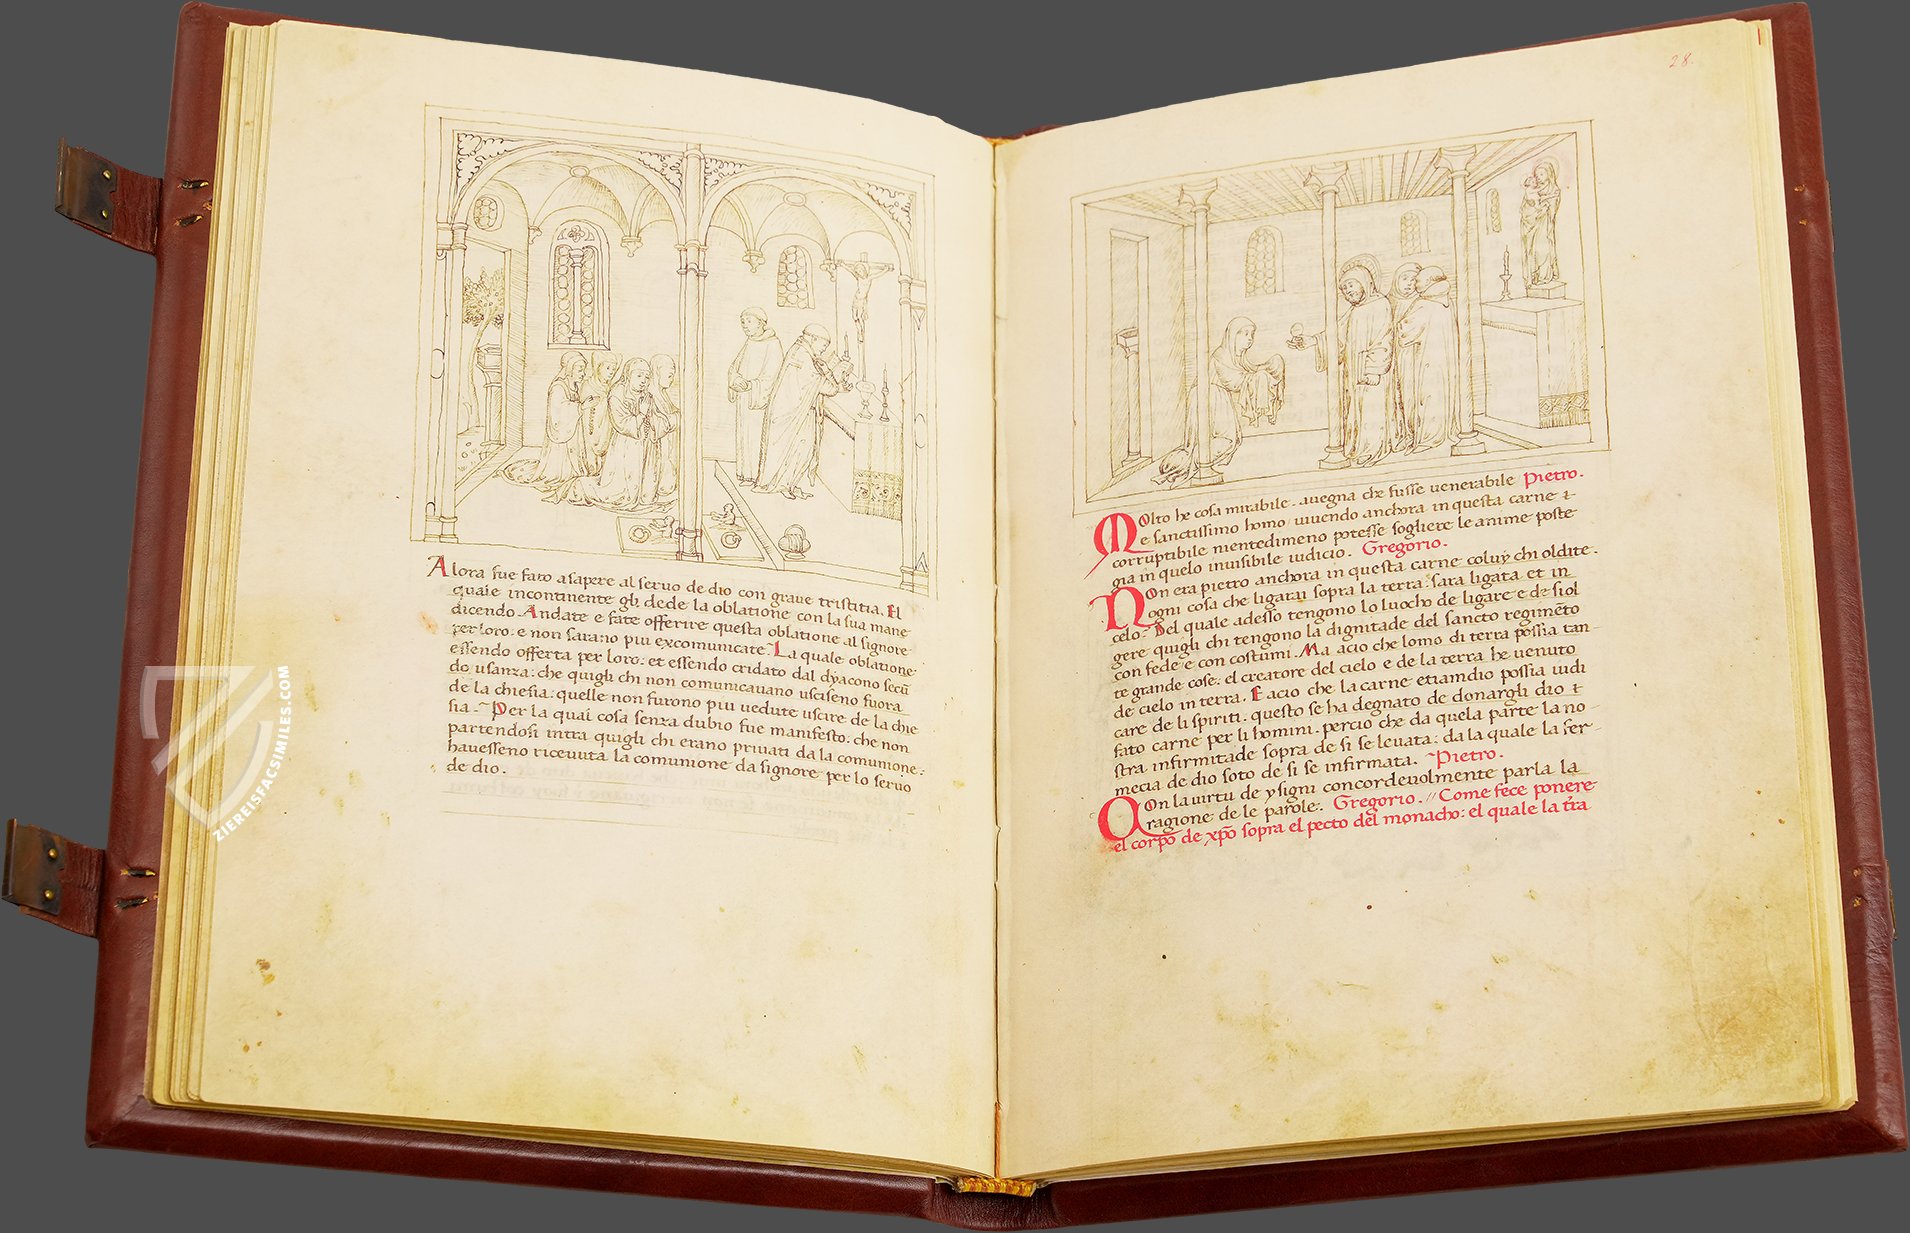 Alora fue fato a sapere al servo de dio con graue tristitia. El
quale incontinente gli dede la oblatione con la sua mane
dicendo. Andate e fate offerire questa oblatione al signore
per loro: e non sarano piu excomunicate. La quale oblatione
essendo offerta per loro: et essendo cridato dal dyacono secu͂
do usanza: che quigli chi non comunicauano usciseno fuora
de la chiesia: quelle non furono piu uedute uscire de la chie
sia. Per la qual cosa senza dubio fue manifesto: che non
partendosi intra quigli chi erano priuati da la comunione:
hauesseno riceuuta la comunione da signore per lo seruo
de dio.
28.
Molto he cosa mirabile. auegna che fusse uenerabile Pietro.
e sanctissimo homo uiuendo anchora in questa carne et
corruptibile nientedimeno potesse sogliere le anime poste
gia in quelo inuisibile iudicio. Gregorio.
Non era pietro anchora in questa carne coluy chi oldite.
ogni cosa che ligaray sopra la terra: sara ligata et in
celo. Del quale adesso tengono lo luocho de ligare e de siol
gere quigli chi tengono la dignitade del sancto regime͂to
con fede e con costumi. Ma acio che lomo di terra possia tan-
te grande cose: el creatore del cielo e de la terra he uenuto
de cielo in terra. E acio che la carne etiamdio possia iudi
care de li spiriti. questo se ha degnato de donargli dio et
fato carne per li homini. percio che da quela parte la no-
stra infirmitade sopra de si se leuata: da la quale la fer-
meça de dio soto de si se infirmata. Pietro.
Con la uirtu de ysigni concordeuolmente parla la
ragione de le parole. Gregorio. // Come fece ponere
el corpo de xp̃o sopra el pecto del monacho: el quale la t̃ra
ZIEREISFACSIMILES.COM